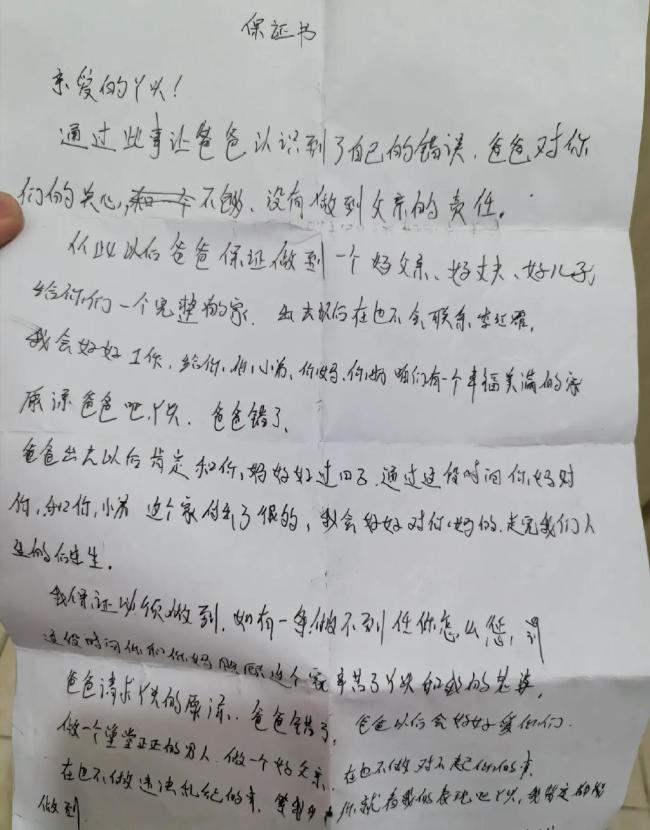 保证书
亲爱的丫头!
通过此事让爸爸认识到了自己的错误.爸爸对你
们的关心,不够、没有做到父亲的责任。
从此以后爸爸保证做到一个好父亲、好丈夫、好儿子,
给你们一个完整的家.出去以后在也不会联系李红
我会好好工作,给你,和小弟、你妈、咱们有一个幸福美满的家
原谅爸爸吧丫头.爸爸错了、
爸爸出去以后肯定和你妈好好过日子.通过这段时间你妈对
你,和你小弟 这个家付出了很多,我会好好对你妈的.走完我们人
生的后半生。
我保证必须做到.如有一事做不到任你怎么
这段时间你和你妈照顾这个家辛苦了丫头和我的老婆,
爸爸请求丫头的原谅.爸爸错了, 爸爸以后会好好爱你们.
做一个堂堂正正的男人.做一个好父亲、在也不做对不起你们的事.
在也不做违法乱纪的事. 你就看我的表现吧丫头,我肯定
做到.